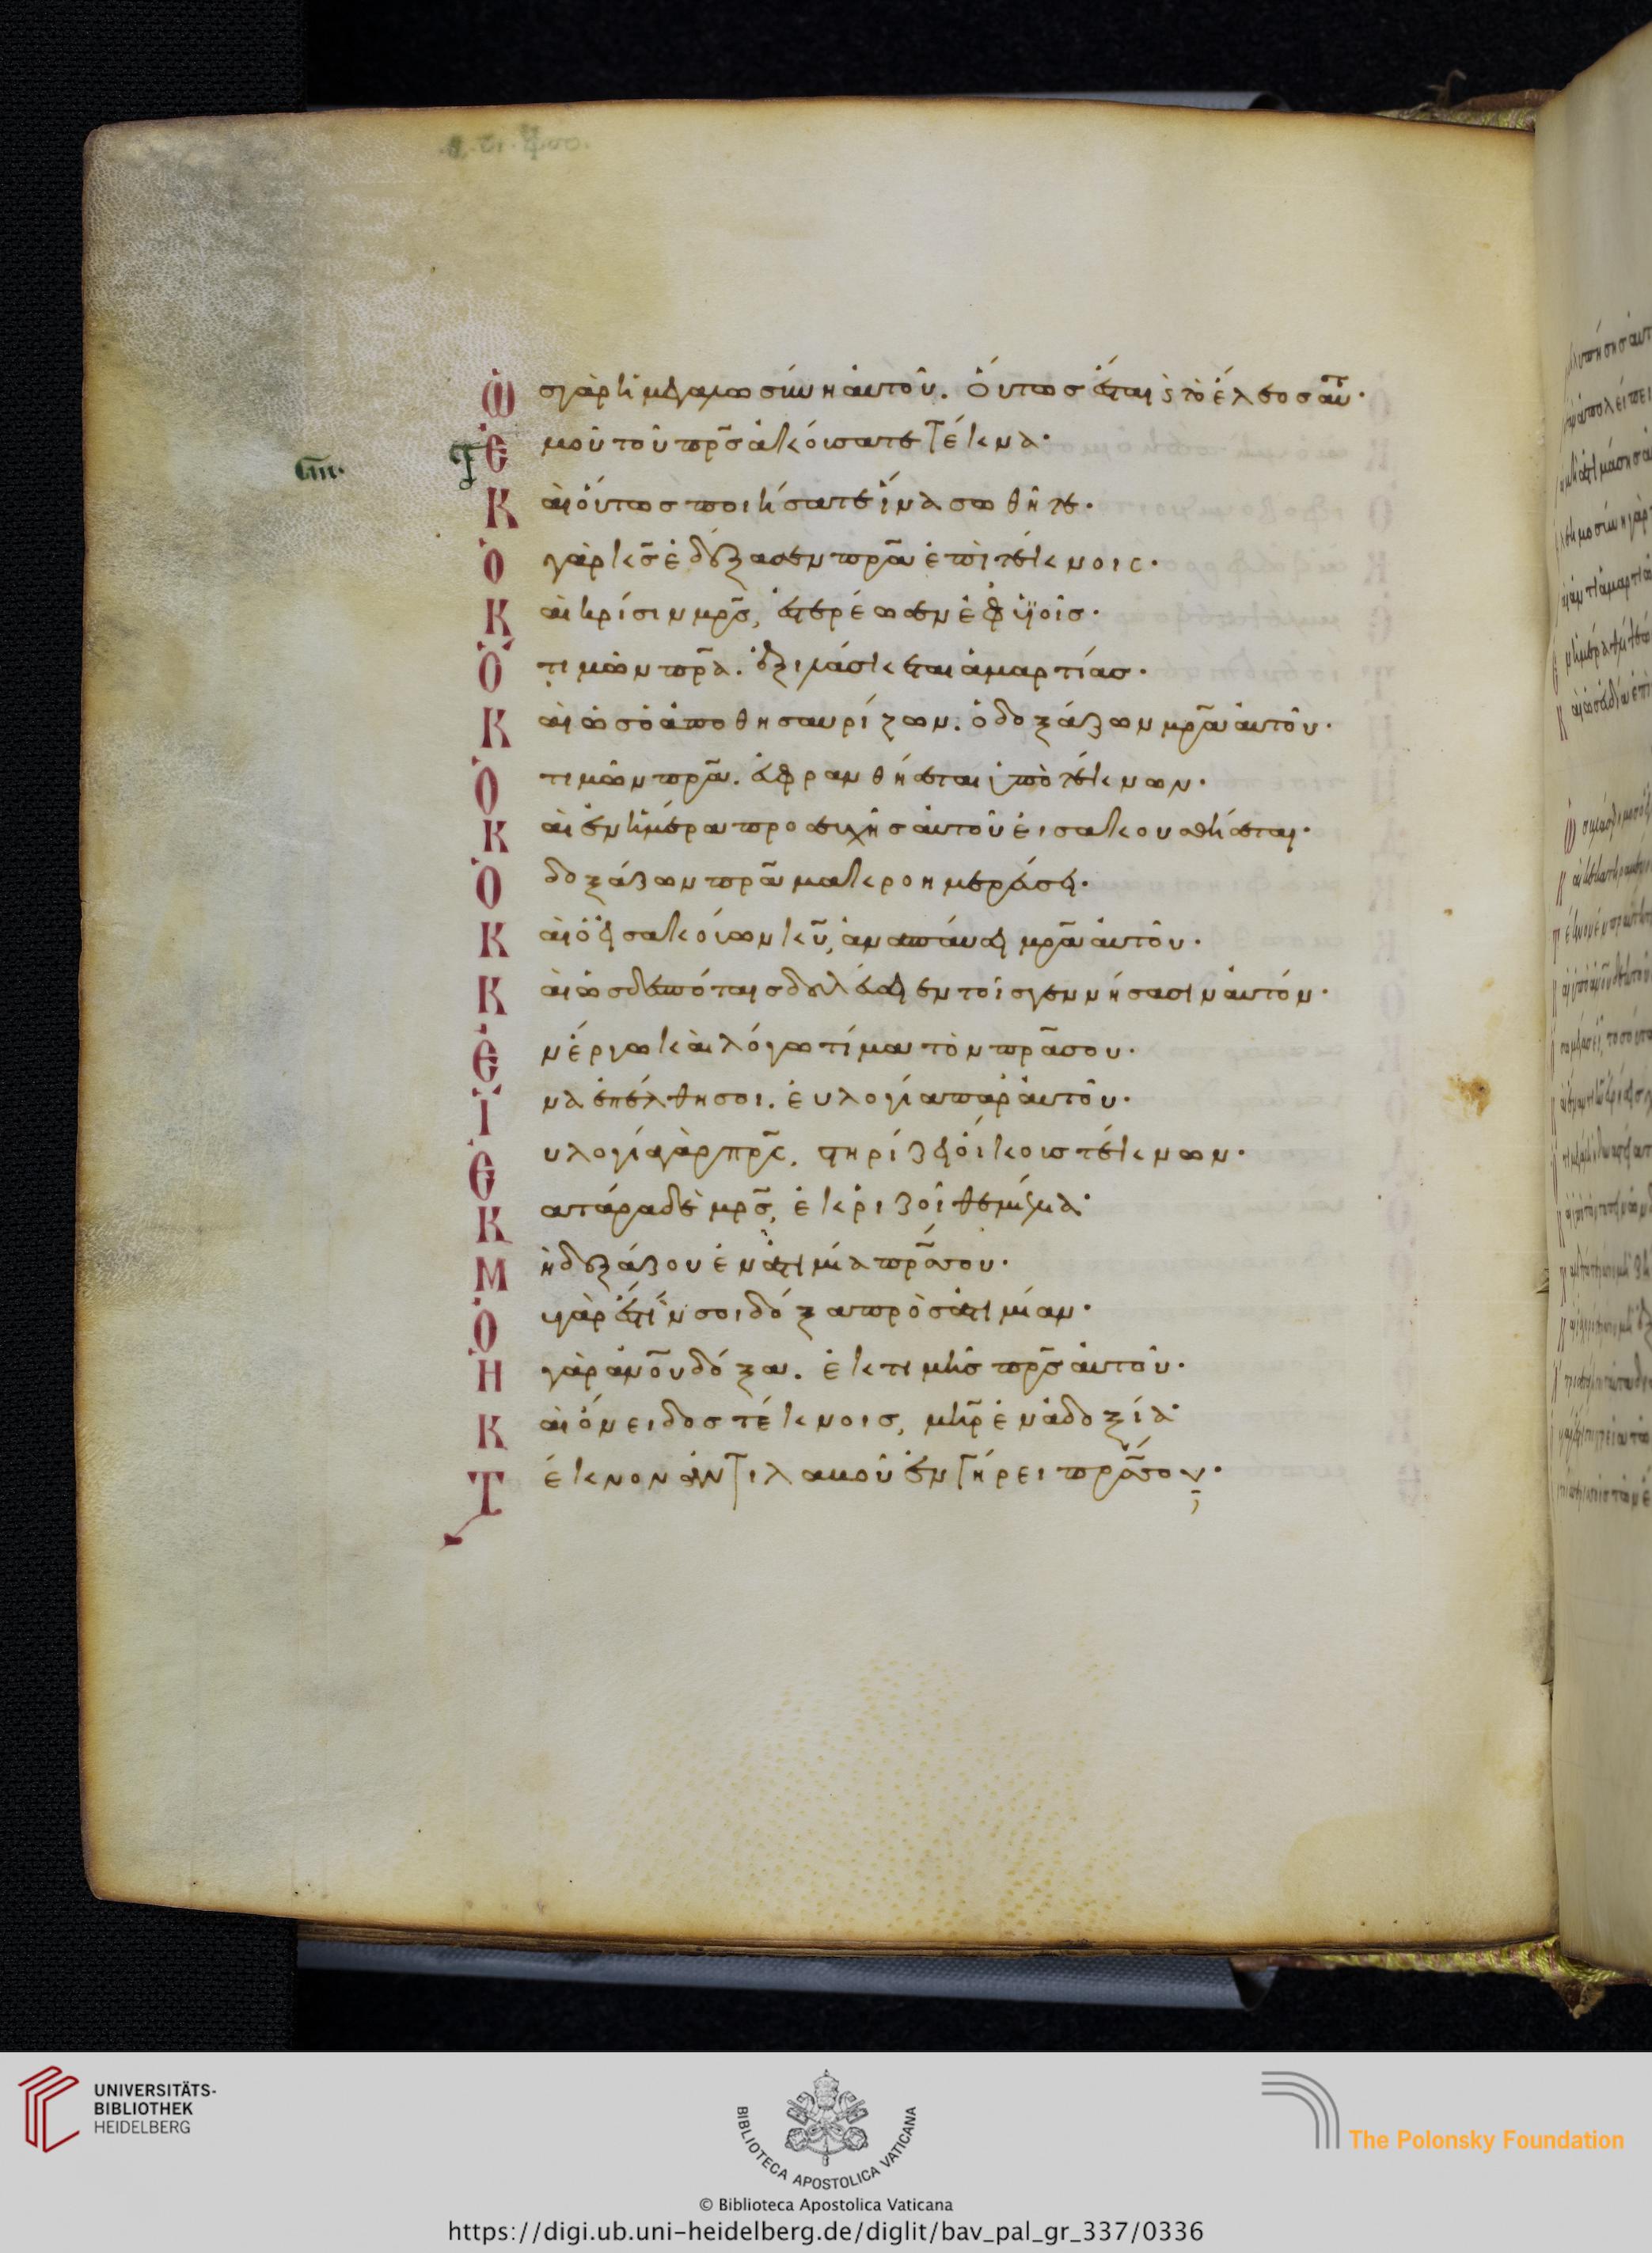 Ὡς γὰρ ἡ μεγαλωσύνη αὐτοῦ. οὕτως ἔσται καὶ τὸ ἔλεος αὐτ
Ἐμοῦ τοῦ πρ̅ς ἀκούσατε τέκνα·
Καὶ οὕτως ποιήσατε ἵνα σωθῆτε·
Ὁ γὰρ κ̅ς ἐδόξασεν πρ̅α ἐπὶ τέκνοις·
Καὶ κρίσιν μρ̅ς, ἐστερέωσεν ἐφ' ὑἱοῖς·
Ὁ τιμῶν πρ̅α. ἐξιλάσκεται ἁμαρτίας·
Καὶ ὡς ὁ ἀποθησαυρίζων. ὁ δοξάζων μρ̅α αὐτοῦ·
Ὁ τιμῶν πρ̅α. εὐφρανθήσεται ὑπὸ τέκνων·
Καὶ ἐν ἡμέρα προσευχῆς αὐτοῦ εἰσακουσθήσεται·
Ὁ δοξάζων πρ̅α μακροημερεύσει·
Καὶ ὁ εἰσακούων κ̅υ, ἀναπαύσει μρ̅α αὐτοῦ·
Καὶ ὡς δεσπόταις δουλεύσει ἐν τοῖς γεννήσασιν αὐτόν·
Ἐν ἔργω καὶ λόγω τίμα τὸν πρ̅α σου·
Ἵνα ἐπέλθη σοι. εὐλογία παρ' αὐτοῦ·
Εὐλογία γὰρ πρ̅ς, στηρίζει οἴκους τέκνων·
Κατάρα δὲ μρ̅ς, ἐκριζοῖ θεμέλια·
Μὴ δοξάζου ἐν ἀτιμία πρ̅ς σου·
Οὐ γὰρ ἐστίν σοι δόξα πρὸς ἀτιμίαν·
Ἡ γὰρ ἀν̅ου δόξα. ἐκ τιμῆς πρ̅ς αὐτοῦ·
Καὶ ὄνειδος τέκνοις, μήρ̅ ἐν ἀδοξία·
Τέκνον ἀντιλαβοῦ ἐν γήρει πρ̅ς σου·
UNIVERSITÄTS-
BIBLIOTHEK
HEIDELBERG
BIBLIOTECA APOSTOLICA VATICANA
The Polonsky Foundation
© Biblioteca Apostolica Vaticana
https://digi.ub.uni-heidelberg.de/diglit/bav_pal_gr_337/0336